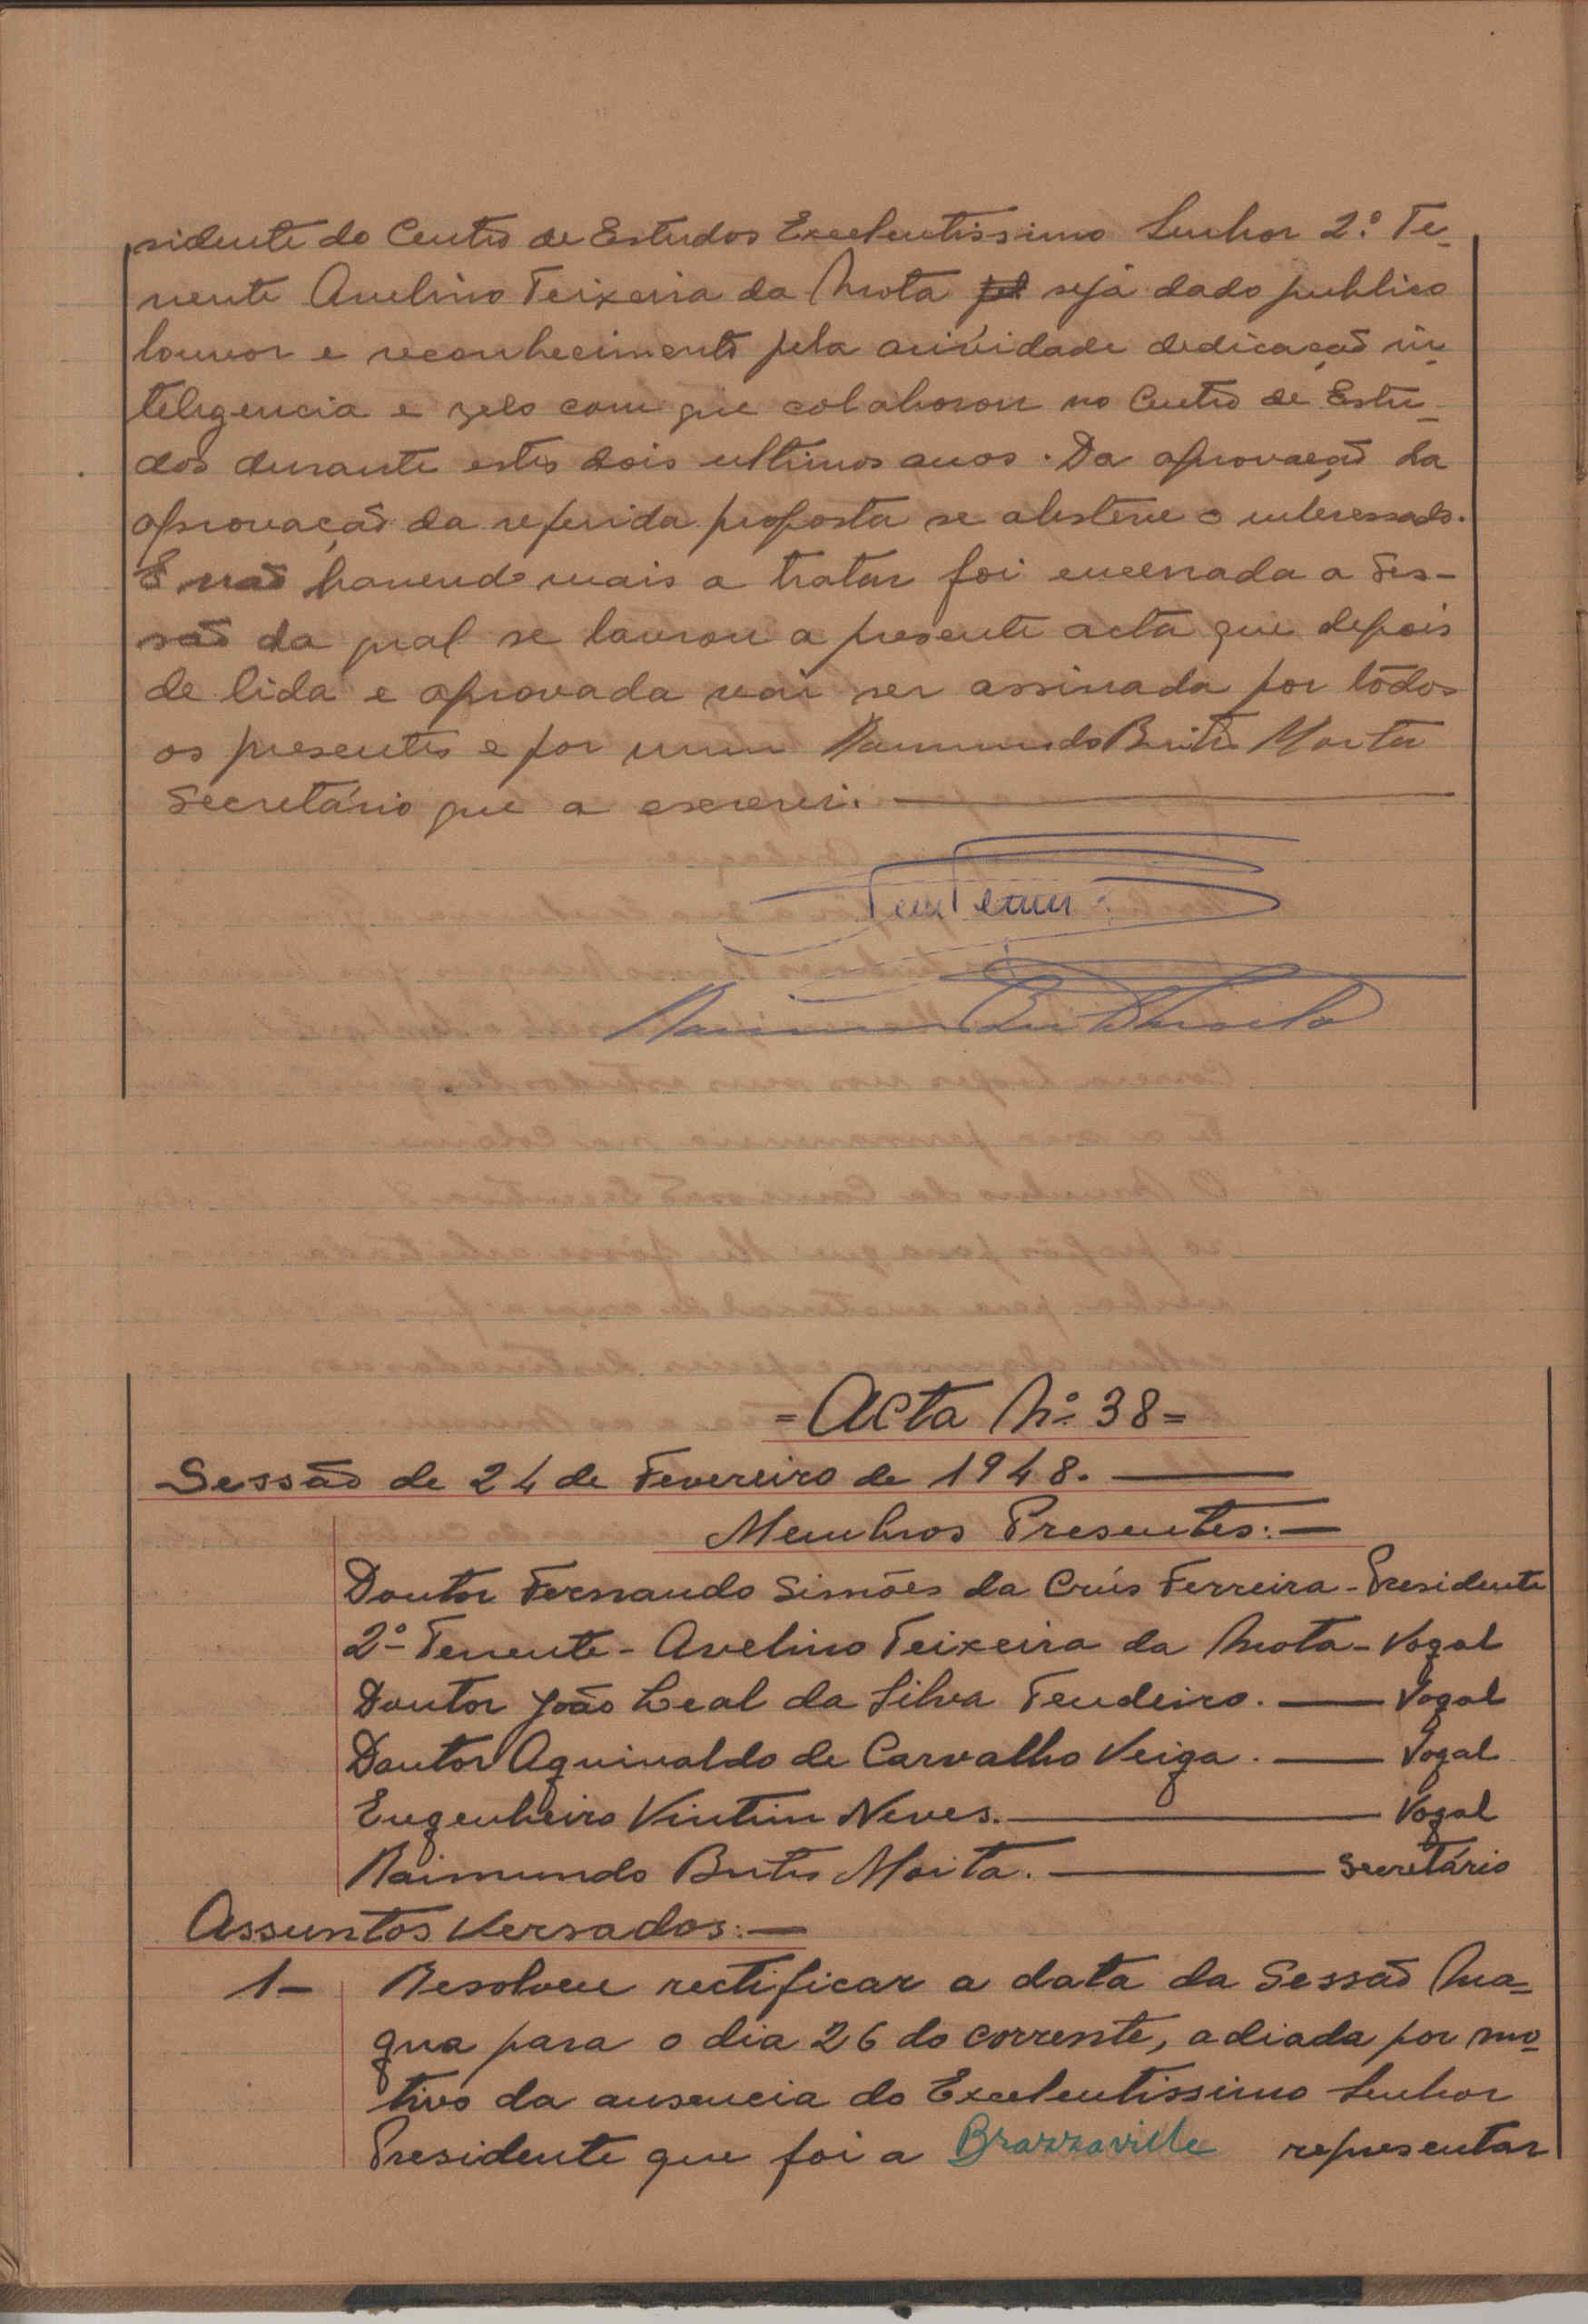 sidente do Centro de Estudos Excelentissimo Senhor 2.º Te-
nente Avelino Teixeira da Mota pel seja dado publico
louvor e reconhecimento pela actividade dedicação in-
teligencia e zelo com que colaborou no Centro de Estu-
dos durante estes dois ultimos anos. Da aprovação da
aprovação da referida proposta se absteve o interessado.
E não havendo mais a tratar foi encerrada a Ses-
são da qual se lavrou a presente acta que depois
de lida e aprovada vai ser assinada por tôdos
os presentes e por mim Raimundo Brites Moita
Secretário que a escrevi.
=Acta Nº 38=
Sessão de 24 de Fevereiro de 1948.
Membros Presentes:-
Doutor Fernando Simões da Crús Ferreira - Presidente
2º Tenente - Avelino Teixeira da Mota - Vogal
Doutor João Leal da Silva Tendeiro. Vogal
Doutor Aguinaldo de Carvalho Veiga. Vogal
Engenheiro Vintim Neves. Vogal
Raimundo Brites Moita. Secretário
Assuntos Versados:-
1- Resolveu rectificar a data da Sessão Ma-
gua para o dia 26 do corrente, adiada por mo-
tivo da ausencia do Excelentissimo Senhor
Presidente que foi a Brazzaville representar